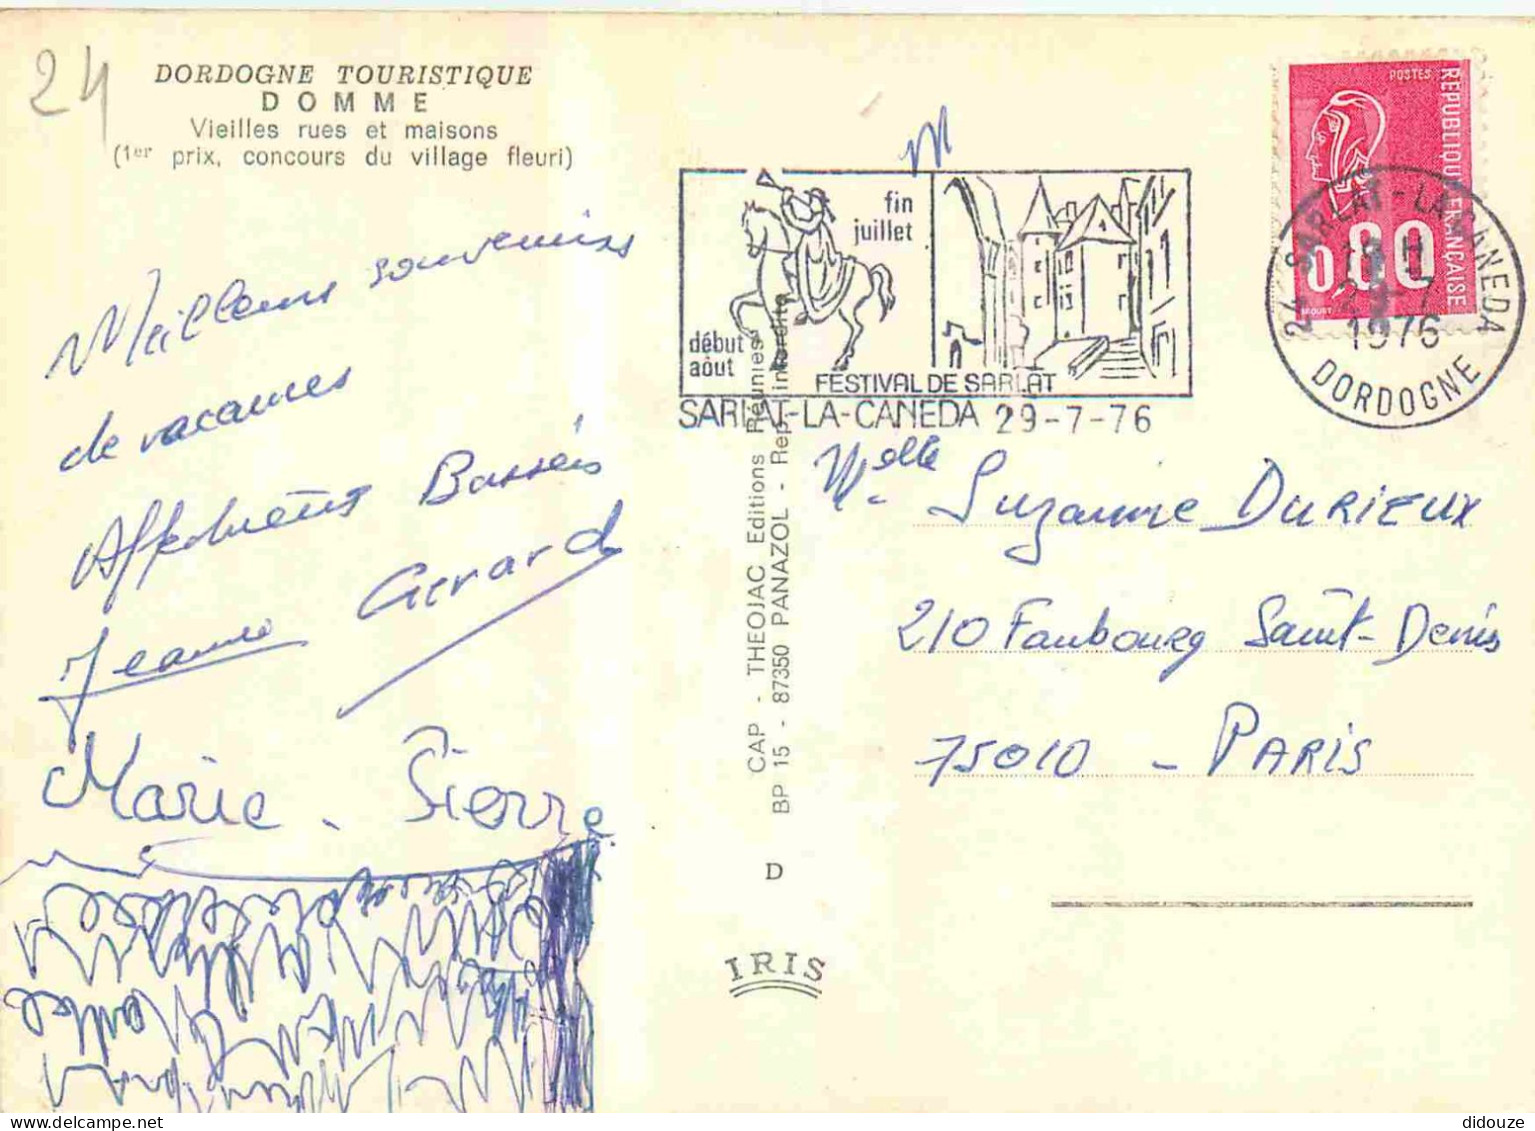 24
DORDOGNE TOURISTIQUE
DOMME
Vieilles rues et maisons
(1er prix, concours du village fleuri)
Meilleurs souvenirs
de vacances
Baisers
Jeanne Gerard
Marie-Pierre
fin
juillet
début
août
FESTIVAL DE SARLAT
SARLAT-LA-CANEDA 29-7-76
POSTES
REPUBLIQUE FRANÇAISE
0,80
24 SARLAT-LA-CANEDA
29-7
1976
DORDOGNE
CAP - THEOJAC Editions Réunies
BP 15 - 87350 PANAZOL - Rep. interdite
D
IRIS
Melle Suzanne DURIEUX
210 Faubourg Saint-Denis
75010 - PARIS
didouze